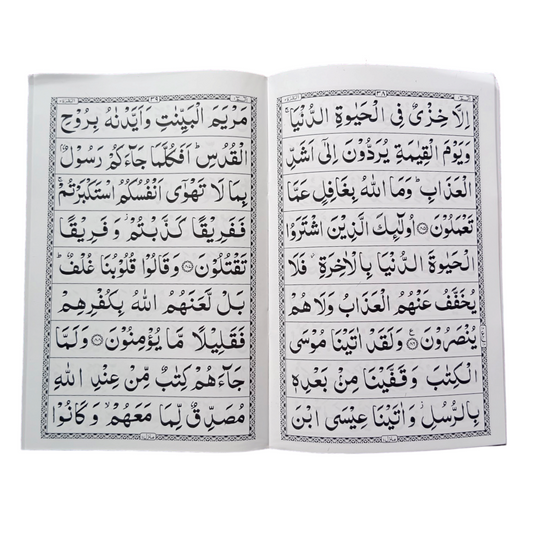 ٣٨
اِلَّا خِزْیٌ فِی الْحَیٰوةِ الدُّنْیَا ۚ
وَیَوْمَ الْقِیٰمَةِ یُرَدُّوْنَ اِلٰۤی اَشَدِّ
الْعَذَابِ ؕ وَمَا اللّٰهُ بِغَافِلٍ عَمَّا
تَعْمَلُوْنَ ﴿۸۵﴾ اُولٰٓئِكَ الَّذِیْنَ اشْتَرَوُا
الْحَیٰوةَ الدُّنْیَا بِالْاٰخِرَةِ ؗ فَلَا
یُخَفَّفُ عَنْهُمُ الْعَذَابُ وَلَا هُمْ
یُنْصَرُوْنَ ﴿۸۶﴾ وَلَقَدْ اٰتَیْنَا مُوْسَی
الْكِتٰبَ وَقَفَّیْنَا مِنْۢ بَعْدِهٖ
بِالرُّسُلِ ؗ وَاٰتَیْنَا عِیْسَی ابْنَ
٣٩
مَرْیَمَ الْبَیِّنٰتِ وَاَیَّدْنٰهُ بِرُوْحِ
الْقُدُسِ ؕ اَفَكُلَّمَا جَآءَكُمْ رَسُوْلٌۢ
بِمَا لَا تَهْوٰۤی اَنْفُسُكُمُ اسْتَكْبَرْتُمْ ۚ
فَفَرِیْقًا كَذَّبْتُمْ ؗ وَفَرِیْقًا
تَقْتُلُوْنَ ﴿۸۷﴾ وَقَالُوْا قُلُوْبُنَا غُلْفٌ ؕ
بَلْ لَّعَنَهُمُ اللّٰهُ بِكُفْرِهِمْ
فَقَلِیْلًا مَّا یُؤْمِنُوْنَ ﴿۸۸﴾ وَلَمَّا
جَآءَهُمْ كِتٰبٌ مِّنْ عِنْدِ اللّٰهِ
مُصَدِّقٌ لِّمَا مَعَهُمْ ۙ وَكَانُوْا